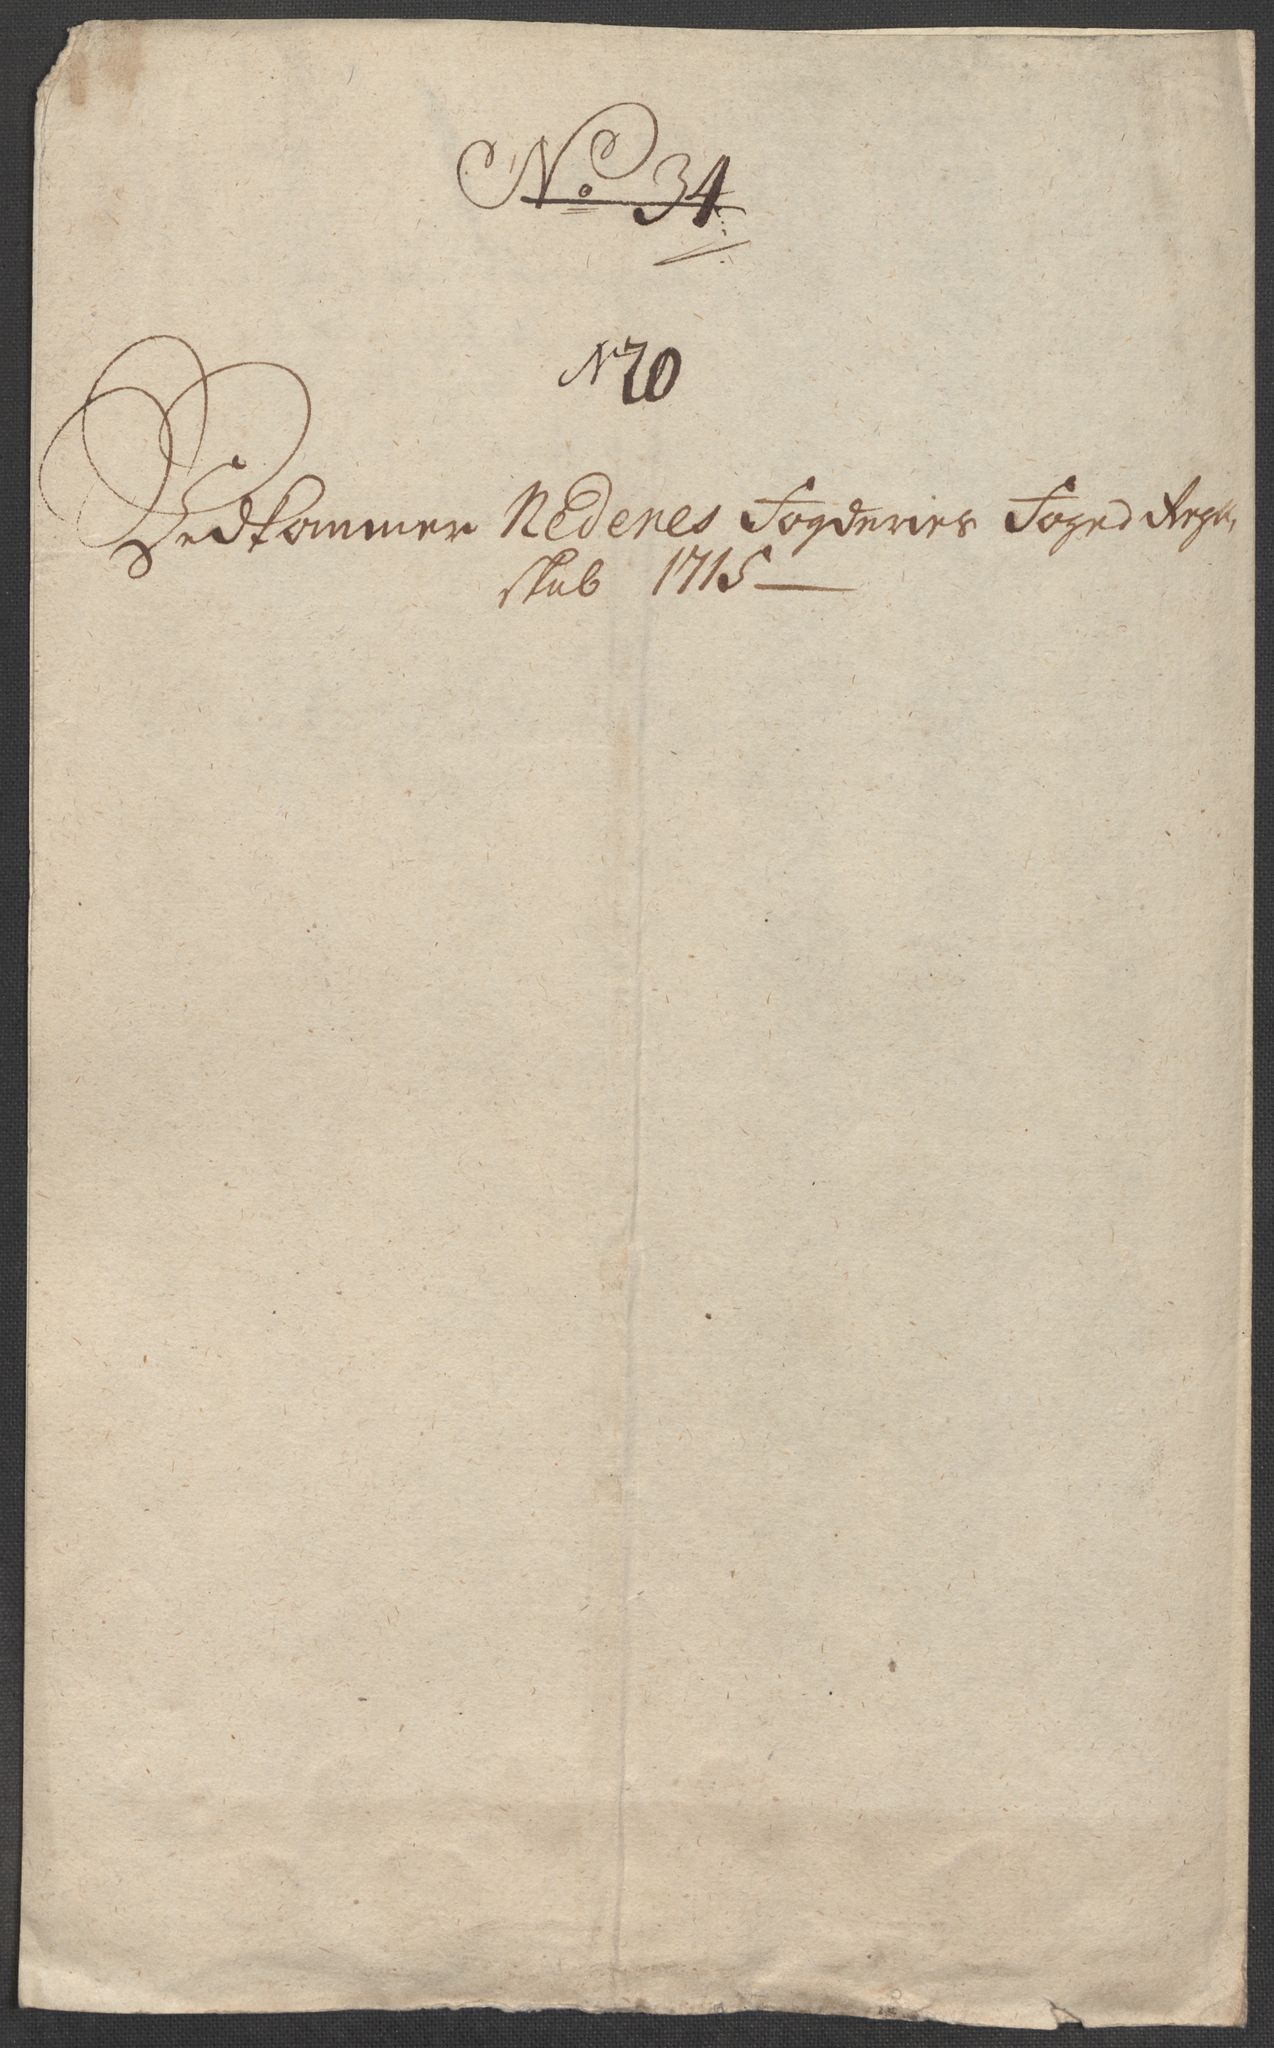 No 34
N 20
Vedkommer Nedenes Fogderies Foged Regn,
skab 1715